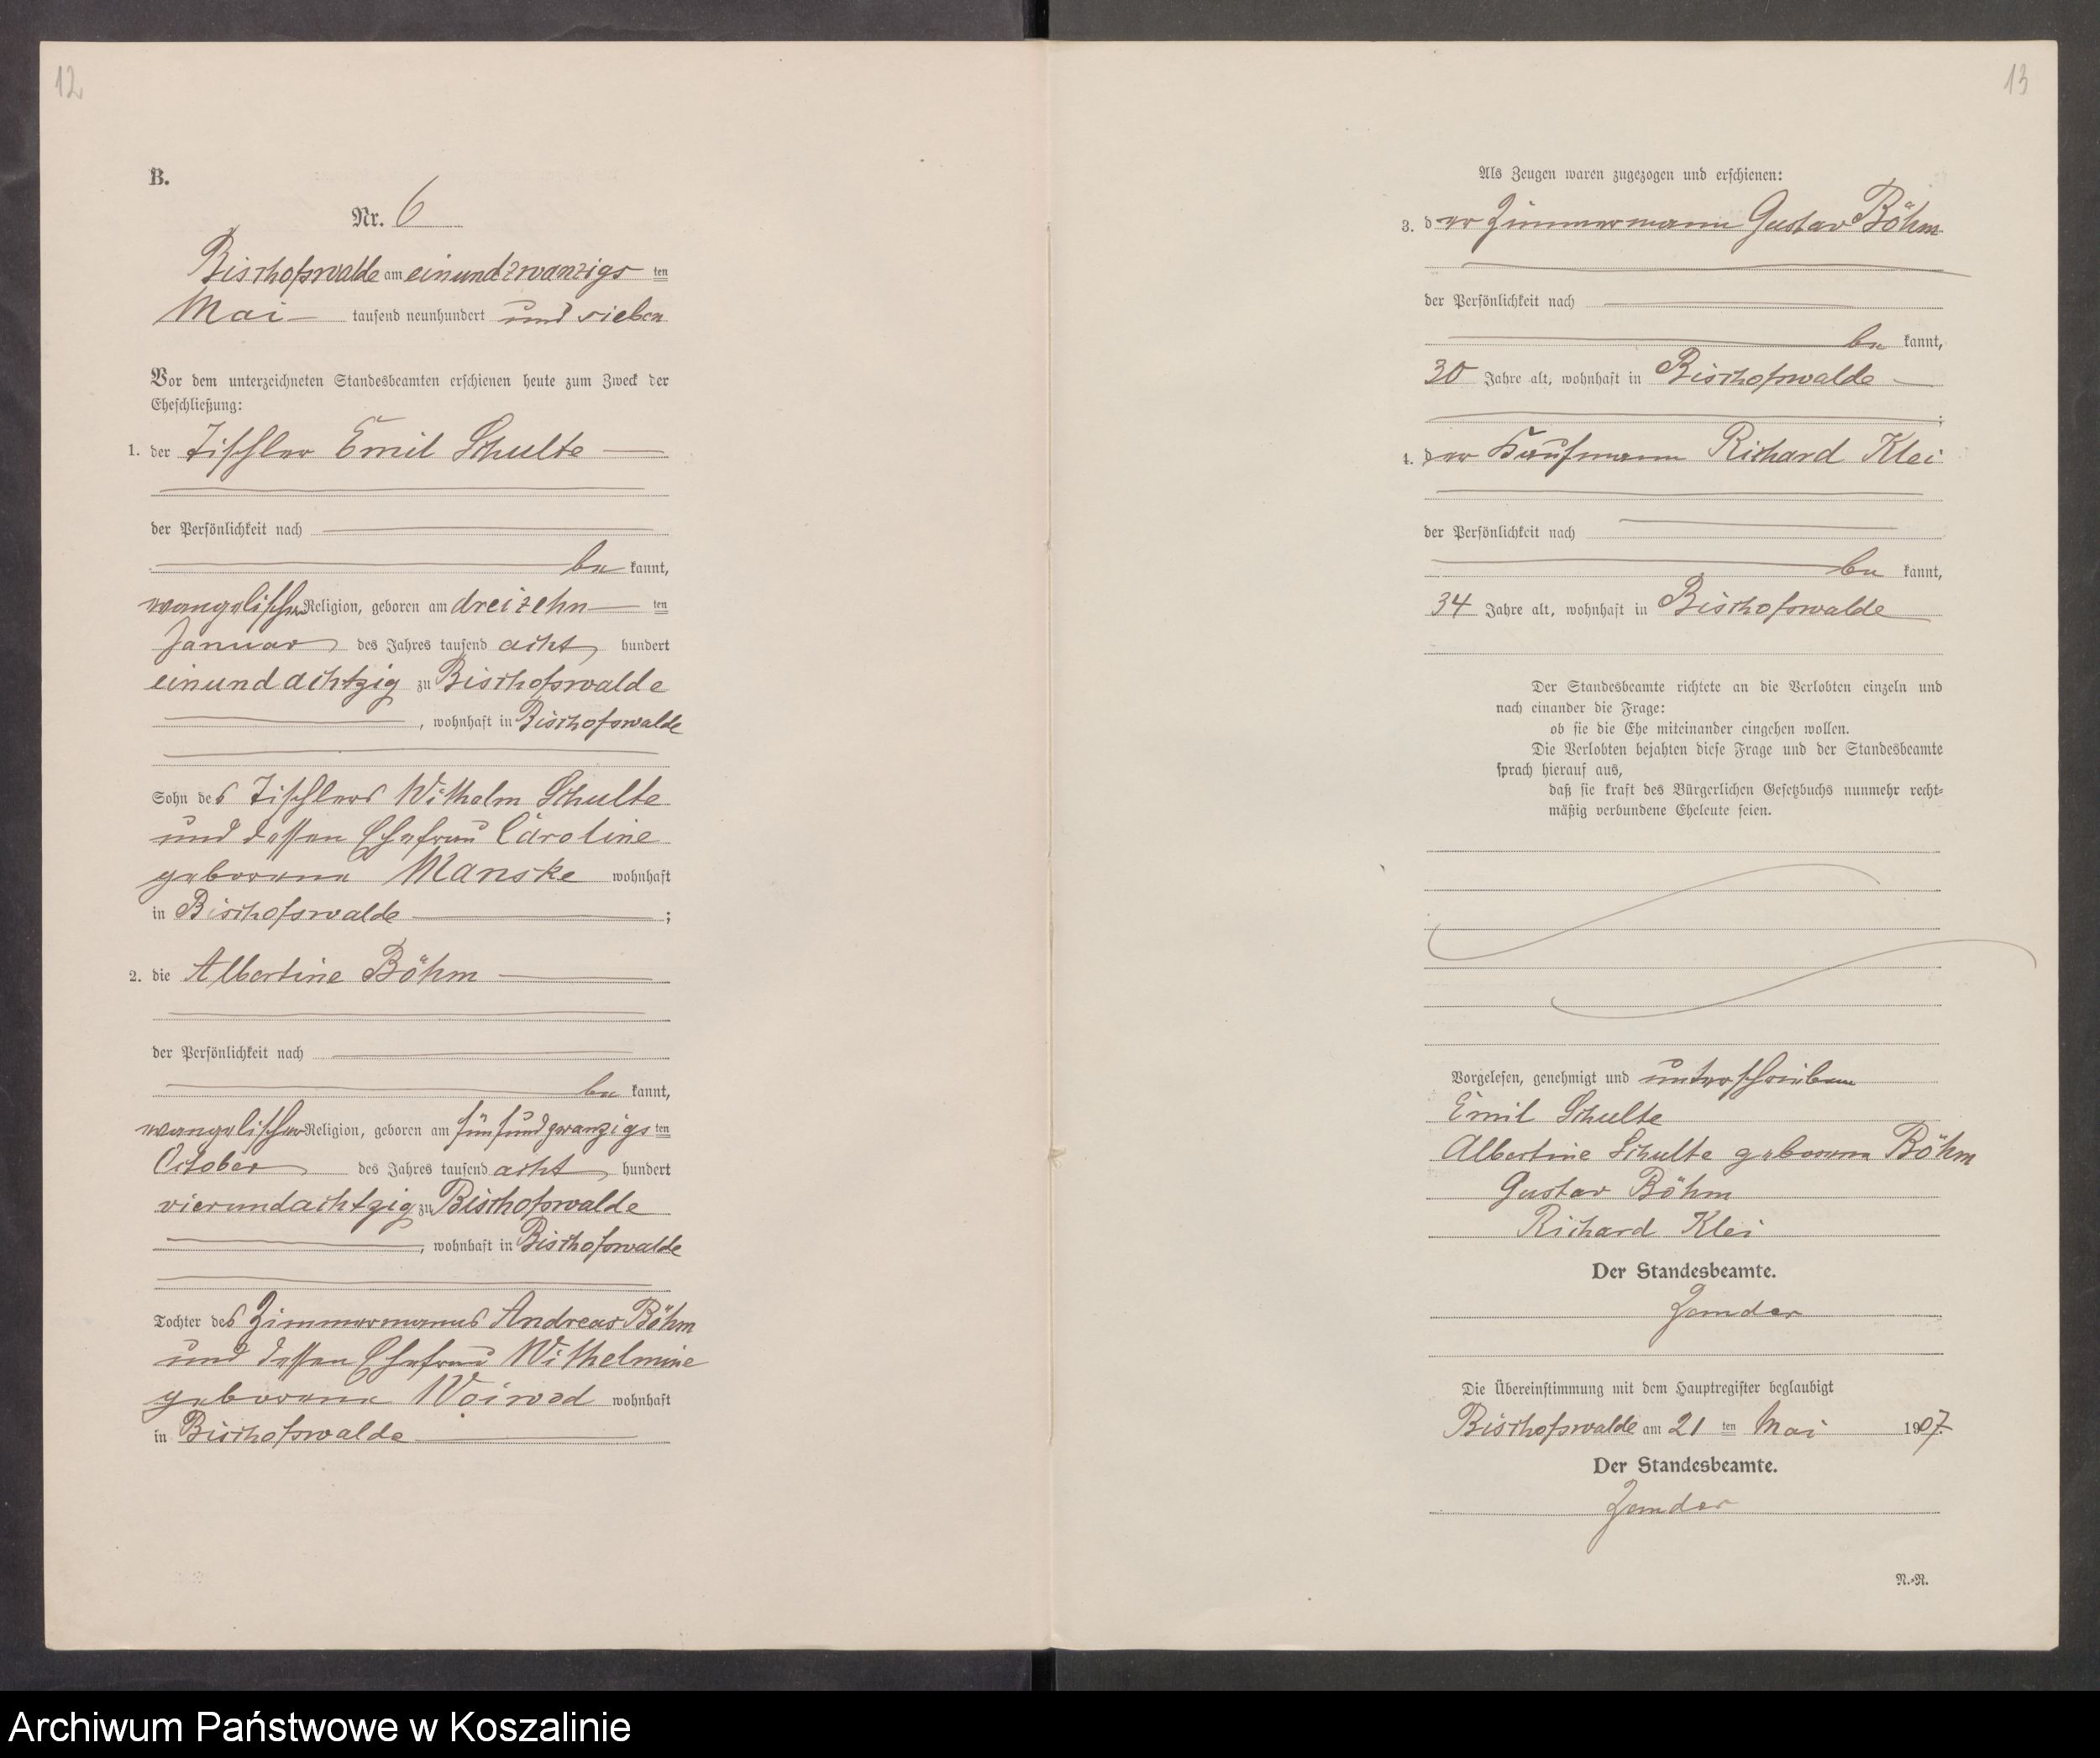 12
B.
Nr. 6
Bischofswalde am einundzwanzigs ten
Mai tausend neunhundert und sieben
Vor dem unterzeichneten Standesbeamten erschienen heute zum Zweck der
Eheschließung:
1. der Tischler Emil Schulte
der Persönlichkeit nach
be kannt,
evangelischer Religion, geboren am dreizehn ten
Januar des Jahres tausend acht hundert
einundachtzig zu Bischofswalde
, wohnhaft in Bischofswalde
Sohn des Tischlers Wilhelm Schulte
und dessen Ehefrau Caroline
geborene Manske wohnhaft
in Bischofswalde ;
2. die Albertine Böhm
der Persönlichkeit nach
be kannt,
evangelischer Religion, geboren am fünfundzwanzigs ten
October des Jahres tausend acht hundert
vierundachtzig zu Bischofswalde
, wohnhaft in Bischofswalde
Tochter des Zimmermanns Andreas Böhm
und dessen Ehefrau Wilhelmine
geborene Woiwod wohnhaft
in Bischofswalde
13
Als Zeugen waren zugezogen und erschienen:
3. der Zimmermann Gustav Böhm
der Persönlichkeit nach
be kannt,
30 Jahre alt, wohnhaft in Bischofswalde
;
4. der Kaufmann Richard Klei
der Persönlichkeit nach
be kannt,
34 Jahre alt, wohnhaft in Bischofswalde
Der Standesbeamte richtete an die Verlobten einzeln und
nach einander die Frage:
ob sie die Ehe miteinander eingehen wollen.
Die Verlobten bejahten diese Frage und der Standesbeamte
sprach hierauf aus,
daß sie kraft des Bürgerlichen Gesetzbuchs nunmehr recht-
mäßig verbundene Eheleute seien.
Vorgelesen, genehmigt und unterschrieben
Emil Schulte
Albertine Schulte geborene Böhm
Gustav Böhm
Richard Klei
Der Standesbeamte.
Zander
Die Übereinstimmung mit dem Hauptregister beglaubigt
Bischofswalde am 21 ten Mai 1907.
Der Standesbeamte.
Zander
N.-R.
Archiwum Państwowe w Koszalinie